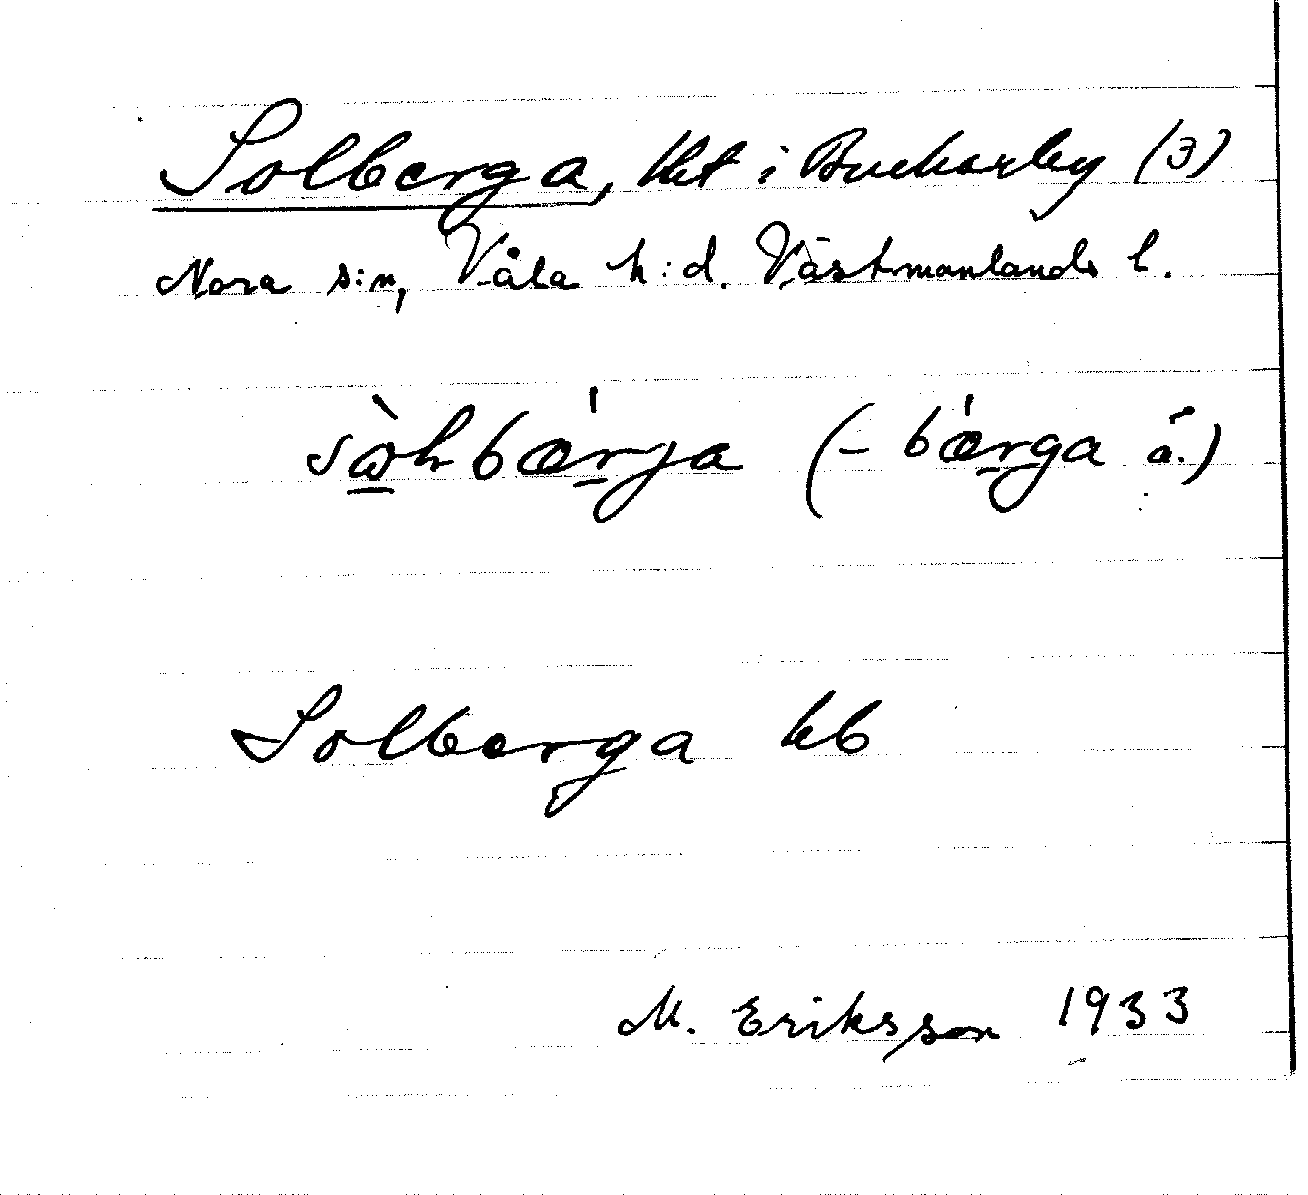 Solberga, lht i Buckarby (3)
Nora s:n, Våla h:d. Västmanlands l.
bærja (-bærga ä.)
Solberga kb
M. Eriksson 1933